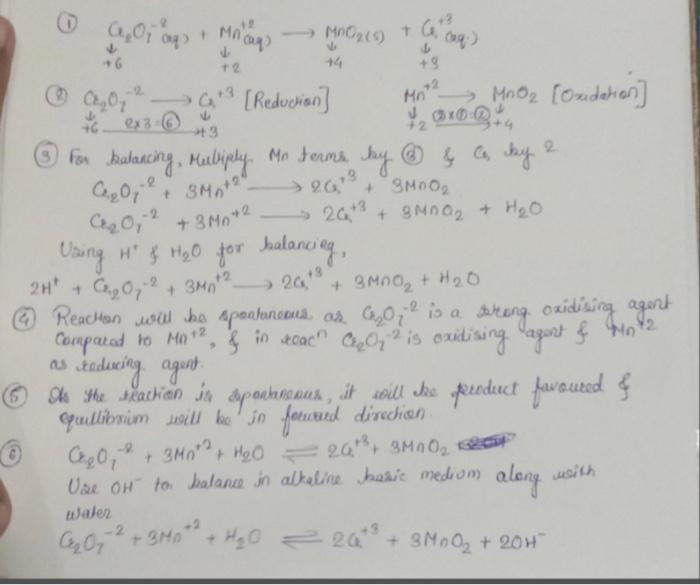 ① Cr₂O₇⁻² (aq) + Mn⁺² (aq) ⟶ MnO₂(s) + Cr⁺³ (aq.)
↓ ↓ ↓ ↓
+6 +2 +4 +3
② Cr₂O₇⁻² ⟶ Cr⁺³ [Reduction] Mn⁺² ⟶ MnO₂ [Oxidation]
↓ ↓ ↓ ↓
+6 2x3=⑥ +3 +2 2x1=② +4
③ For balancing, Multiply Mn terms by ③ & Cr by 2
Cr₂O₇⁻² + 3Mn⁺² ⟶ 2Cr⁺³ + 3MnO₂
Cr₂O₇⁻² + 3Mn⁺² ⟶ 2Cr⁺³ + 3MnO₂ + H₂O
Using H⁺ & H₂O for balancing,
2H⁺ + Cr₂O₇⁻² + 3Mn⁺² ⟶ 2Cr⁺³ + 3MnO₂ + H₂O
④ Reaction will be spontaneous as Cr₂O₇⁻² is a strong oxidising agent
compared to Mn⁺², & in reacⁿ Cr₂O₇⁻² is oxidising agent & Mn⁺²
as reducing agent.
⑤ As the reaction is spontaneous, it will be product favoured &
equillibrium will be in forward direction.
⑥ Cr₂O₇⁻² + 3Mn⁺² + H₂O ⇌ 2Cr⁺³ + 3MnO₂
Use OH⁻ to balance in alkaline basic medium along with
water
Cr₂O₇⁻² + 3Mn⁺² + H₂O ⇌ 2Cr⁺³ + 3MnO₂ + 2OH⁻